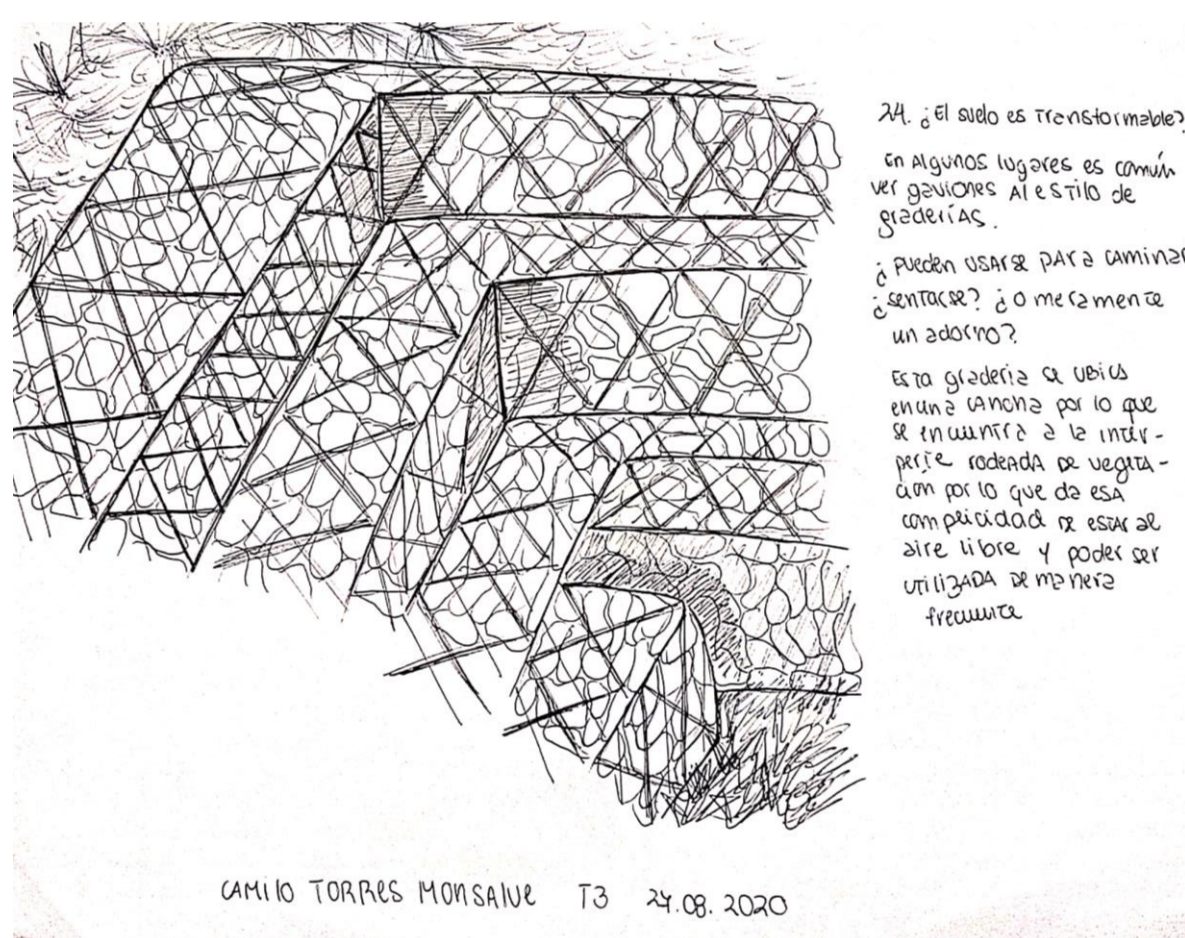 24. ¿El suelo es Transformable?
En Algunos lugares es común
ver gaviones Al estilo de
graderías.
¿Pueden usarse para caminar
¿sentarse? ¿o meramente
un adorno?
Esta gradería se ubica
en una cancha por lo que
se encuentra a la inter-
perie rodeada de vegeta-
ción por lo que da esa
complicidad de estar al
aire libre y poder ser
utilizada de manera
frecuente
CAMILO TORRES MONSALVE T3 24.08.2020